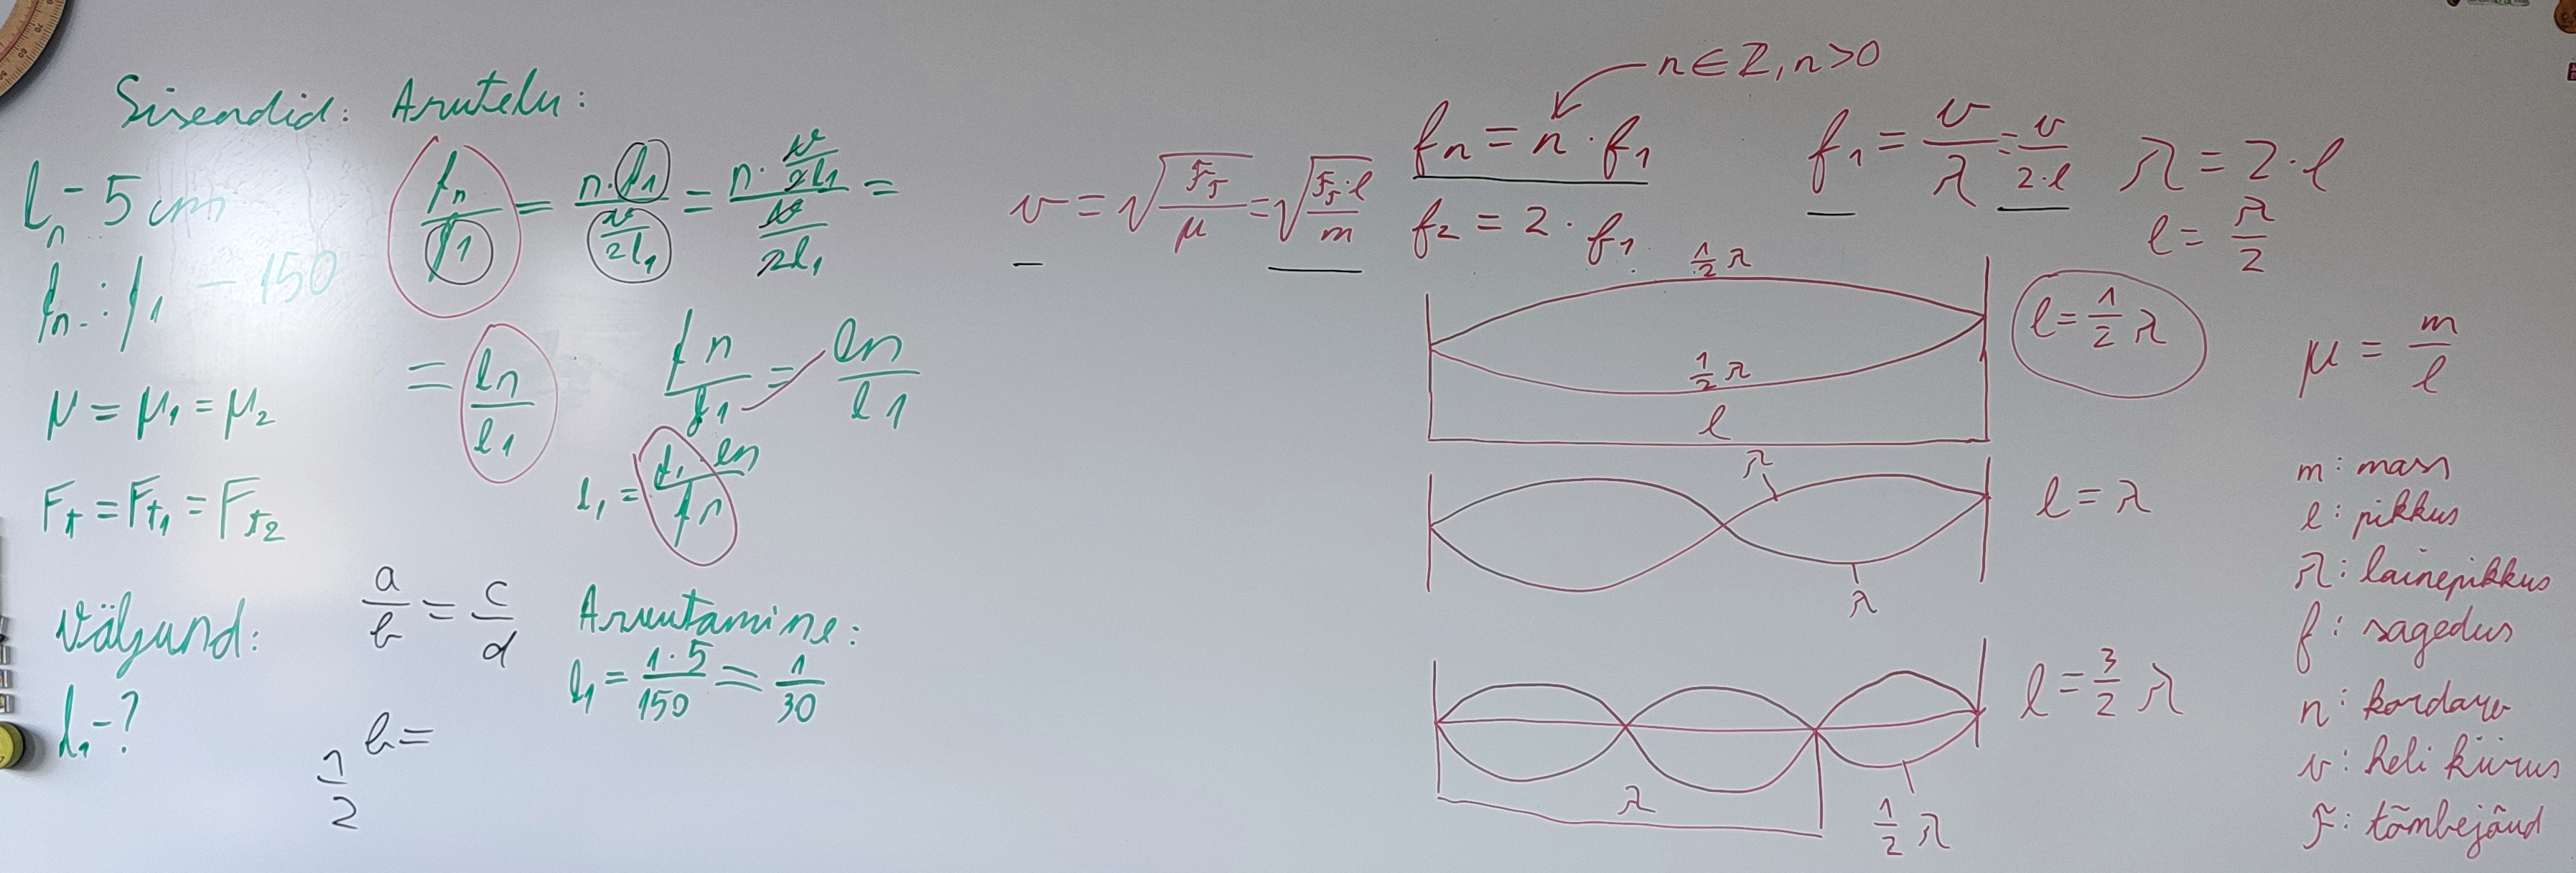 Sisendid: Arutelu:
l_n - 5 cm
f_n : f_1 - 150
μ = μ_1 = μ_2
F_t = F_t1 = F_t2
Väljund:
l_1 - ?
f_n / f_1 = n · f_1 / (v / 2l_1) = n · (v / 2l_1) / (v / 2l_1) =
= l_n / l_1
f_n / f_1 = l_n / l_1
l_1 = f_1 · l_n / f_n
a / b = c / d
b =
1 / 2
Arvutamine:
l_1 = 1 · 5 / 150 = 1 / 30
v = √(F_T / μ) = √(F_T · l / m)
n ∈ Z, n > 0
f_n = n · f_1
f_2 = 2 · f_1
f_1 = v / λ = v / 2 · l
λ = 2 · l
l = λ / 2
1/2 λ
1/2 λ
l
l = 1/2 λ
λ
λ
l = λ
λ
1/2 λ
l = 3/2 λ
μ = m / l
m: mass
l: pikkus
λ: lainepikkus
f: sagedus
n: kordarv
v: heli kiirus
F: tõmbejõud